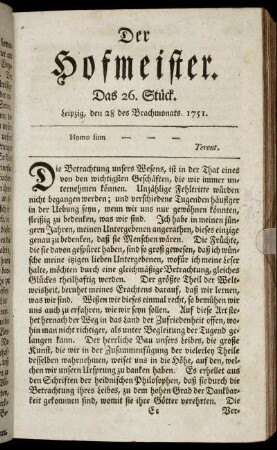 Der
Hofmeister.
Das 26. Stück.
Leipzig, den 28 des Brachmonats. 1751.
Homo sum — — —
Terent.
Die Betrachtung unsers Wesens, ist in der That eines
von den wichtigsten Geschäften, die wir immer un-
ternehmen können. Unzählige Fehltritte würden
nicht begangen werden; und verschiedene Tugenden häufiger
in der Uebung seyn, wenn wir uns nur gewöhnen könnten,
fleißig zu bedenken, was wir sind. Ich habe in meinen jün-
gern Jahren, meinen Untergebenen angerathen, dieses einzige
genau zu bedenken, daß sie Menschen wären. Die Früchte,
die sie davon gespüret haben, sind so groß gewesen, daß ich wün-
sche meine itzigen lieben Untergebenen, wofür ich meine Leser
halte, möchten durch eine gleichmäßige Betrachtung, gleiches
Glückes theilhaftig werden. Der größte Theil der Welt-
weisheit, beruhet meines Erachtens darauf, daß wir lernen,
was wir sind. Wissen wir dieses einmal recht, so bemühen wir
uns auch zu erfahren, wie wir seyn sollen. Auf diese Art ste-
het hernach der Weg in das Land der Zufriedenheit offen, wo-
hin man nicht richtiger, als unter Begleitung der Tugend ge-
langen kann. Der herrliche Bau unsers Leibes, die große
Kunst, die wir in der Zusammenfügung der vielerley Theile
desselben wahrnehmen, weiset uns in die Höhe, auf den, wel-
chen wir unsern Ursprung zu danken haben. Es erhellet aus
den Schriften der heidnischen Philosophen, daß sie durch die
Betrachtung ihres Leibes, zu dem hohen Grad der Dankbar-
keit gekommen sind, womit sie ihre Götter verehrten. Die
Cc Ver-